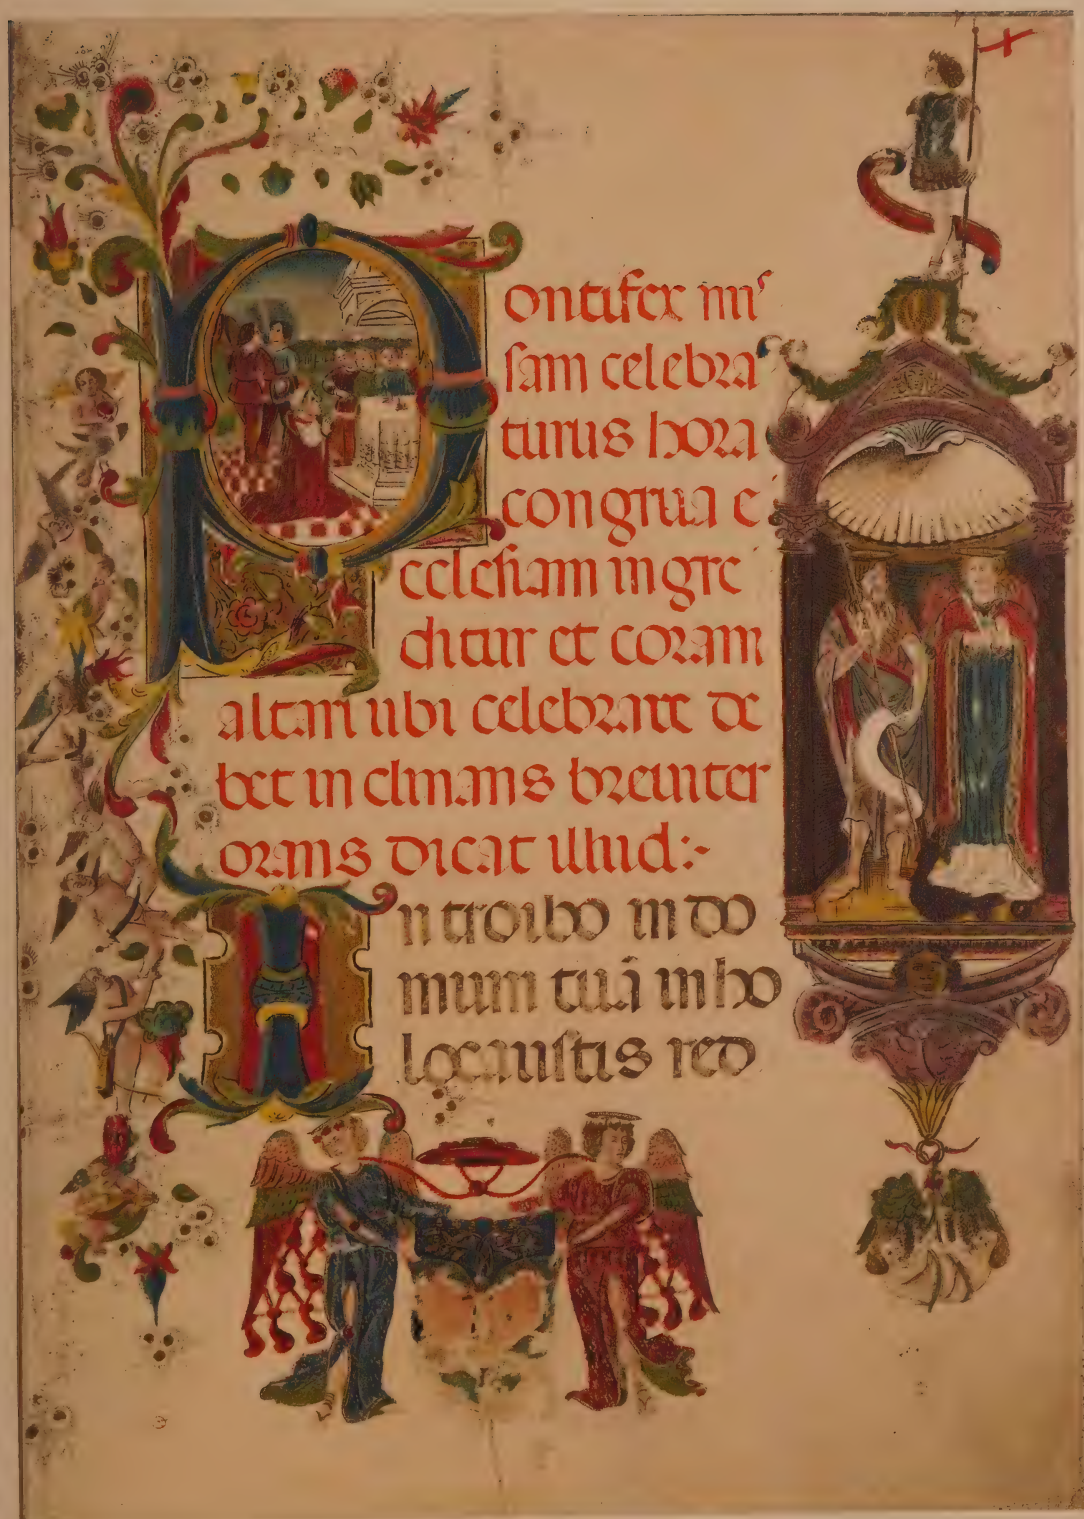 Pontifex mis
sam celebra
turus hora
congrua e
cclesiam ingre
ditur et coram
altari ubi celebrare de
bet inclinans breuiter
orans dicat illud:-
Introibo in do
mum tuā in ho
locaustis red